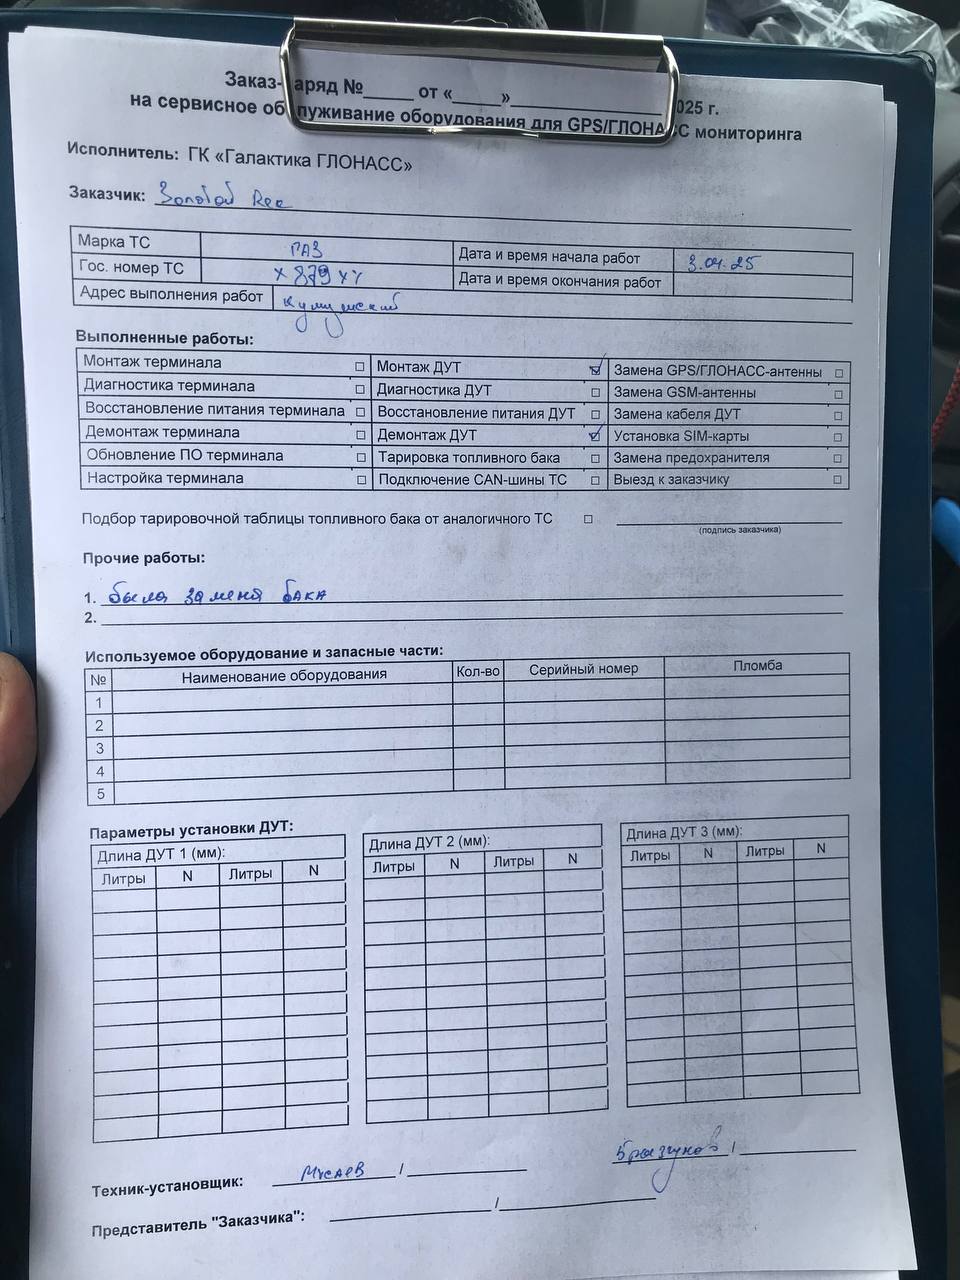 Заказ-наряд №_____ от «____»______________2025 г.
на сервисное обслуживание оборудования для GPS/ГЛОНАСС мониторинга
Исполнитель: ГК «Галактика ГЛОНАСС»
Заказчик: Золотой Век
Марка ТС ГАЗ Дата и время начала работ 3.04.25
Гос. номер ТС х 879 ху Дата и время окончания работ
Адрес выполнения работ
Выполненные работы:
Монтаж терминала ☐ Монтаж ДУТ ☑ Замена GPS/ГЛОНАСС-антенны ☐
Диагностика терминала ☐ Диагностика ДУТ ☐ Замена GSM-антенны ☐
Восстановление питания терминала ☐ Восстановление питания ДУТ ☐ Замена кабеля ДУТ ☐
Демонтаж терминала ☐ Демонтаж ДУТ ☑ Установка SIM-карты ☐
Обновление ПО терминала ☐ Тарировка топливного бака ☐ Замена предохранителя ☐
Настройка терминала ☐ Подключение CAN-шины ТС ☐ Выезд к заказчику ☐
Подбор тарировочной таблицы топливного бака от аналогичного ТС ☐
(подпись заказчика)
Прочие работы:
1. была замена бака
2.
Используемое оборудование и запасные части:
№ Наименование оборудования Кол-во Серийный номер Пломба
1
2
3
4
5
Параметры установки ДУТ:
Длина ДУТ 1 (мм): Длина ДУТ 2 (мм): Длина ДУТ 3 (мм):
Литры N Литры N Литры N Литры N Литры N Литры N
Техник-установщик: Мусаев / Брызгунов /
Представитель "Заказчика": /